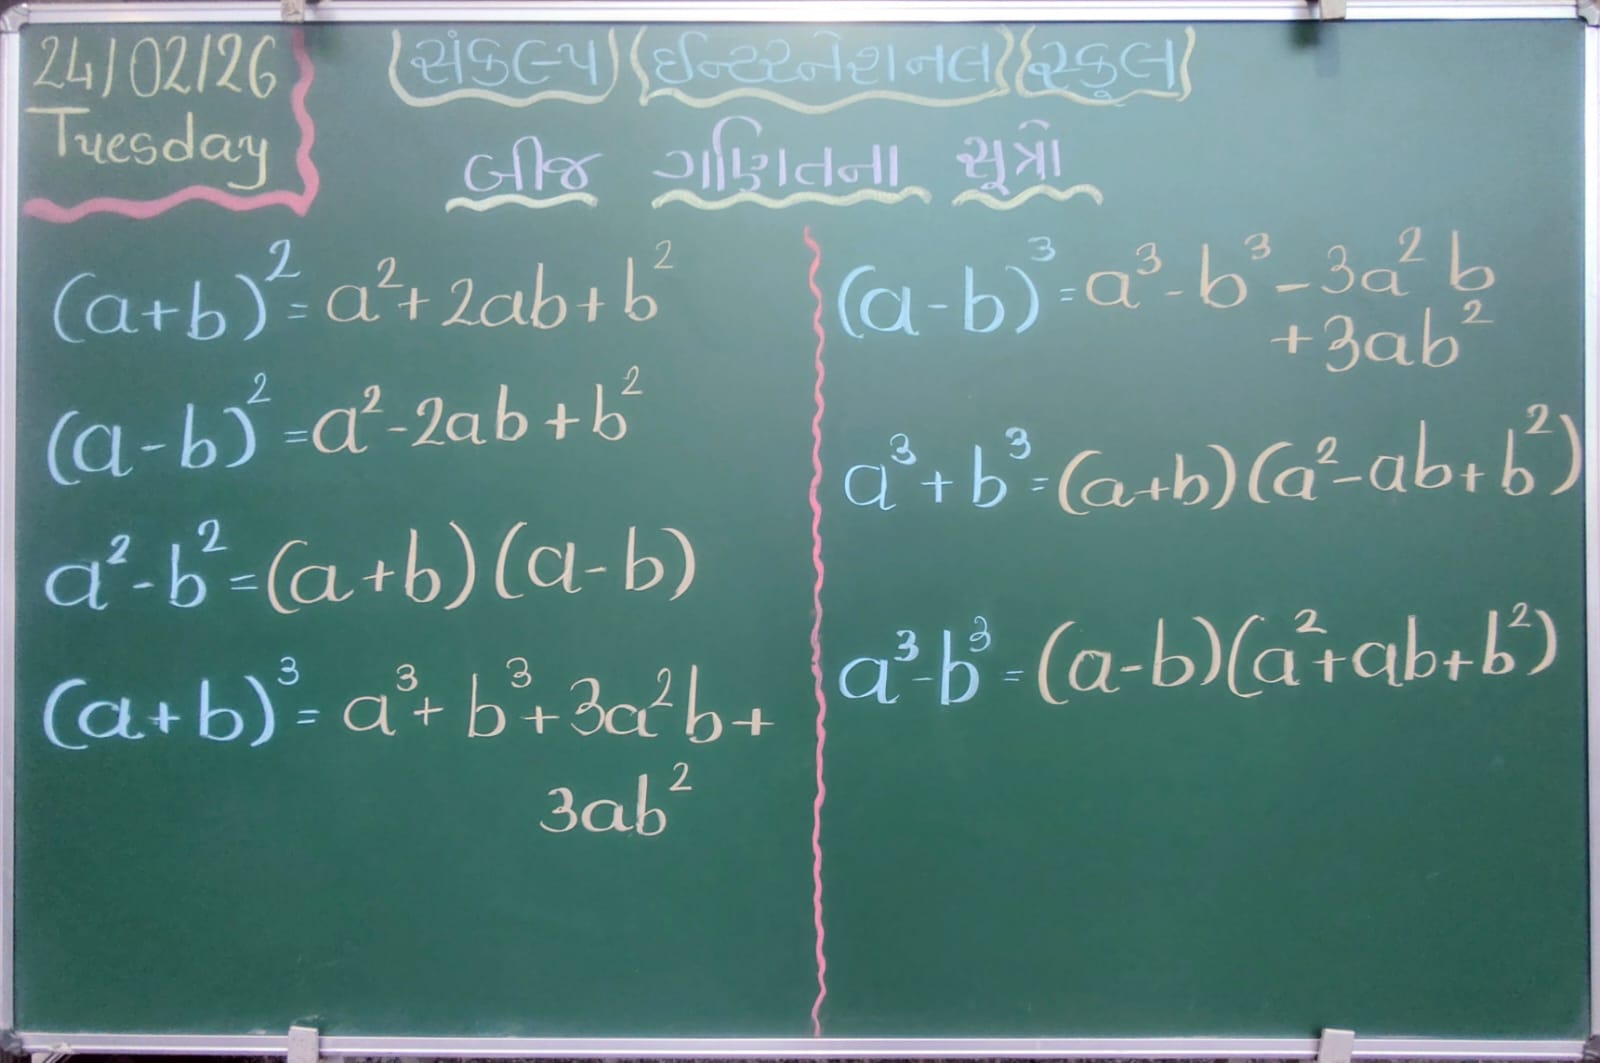 24/02/26
Tuesday
સંકલ્પ ઈન્ટરનેશનલ સ્કૂલ
બીજ ગણિતના સૂત્રો
(a+b)² = a²+2ab+b²
(a-b)² = a²-2ab+b²
a²-b² = (a+b)(a-b)
(a+b)³ = a³+b³+3a²b+
3ab²
(a-b)³ = a³-b³-3a²b
+3ab²
a³+b³ = (a+b)(a²-ab+b²)
a³-b³ = (a-b)(a²+ab+b²)